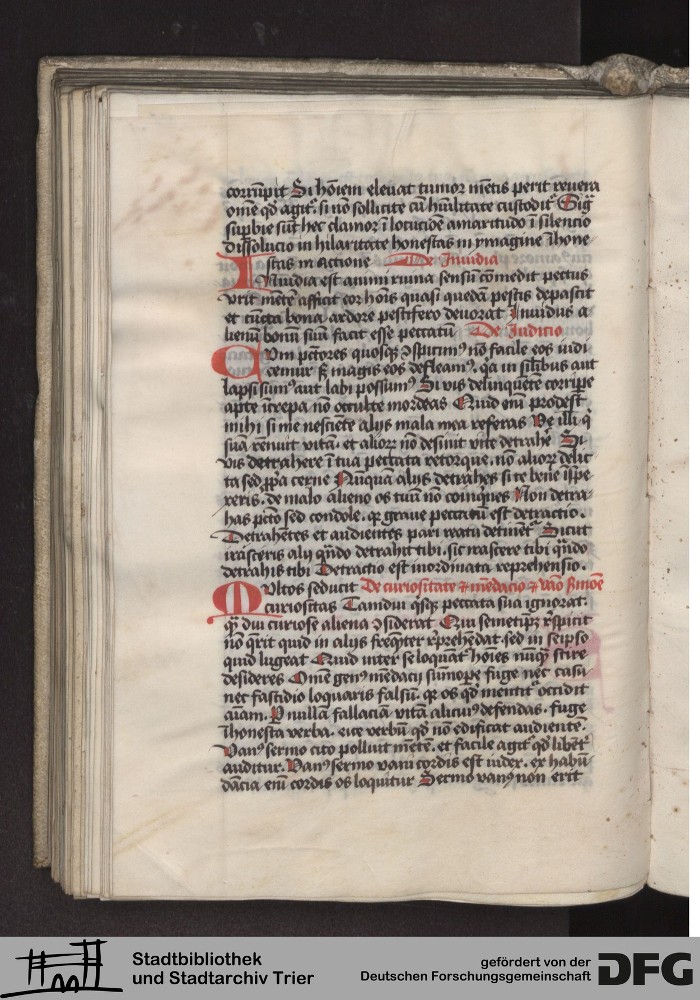 corrūpit Si hōiem eleuat tumor mētis perit reuera
ōme qd̄ agitᷓ. si nō sollicite cū hūilitate custodit᷑ Sig̅
supbie sūt hec clamor ī locucōe amaritudo ī silencio
dissolucio in hilaritate honestas in ymagine Ihone-
stas in actione De Inuidia
INuidia est animi ruina sensū cōmedit pectus
vrit mētē afficit cor hōis quasi quedā pestis depascit
et cūcta bona ardore pestifero deuorat Inuidus a
lienū bonū suū facit esse peccatū De Iudicio
CVm pctōres quosqꝫ ɔspicimꝰ nō facile eos iudi
cemur sꝫ magis eos defleamꝰ. qꝛ in silībus aut
lapsi sumꝰ aut labi possumꝰ Si vis delinquētē corripe
apte īcrepa nō occulte mordeas Quid em̄ prodest
mihi si me nesciēte alijs mala mea referas Ve illi q̇
suā rēnuit vitā. et alioꝝ nō desinit vite detrahe᷑ Si
vis detrahere ī tua peccata retorque. nō alioꝝ delic
ta sed ꝓpa cerne Nūqua alijs detrahes si te bene īspe
xeris. de malo alieno os tuū nō coinques Non detra-
has pctō sed condole. qꝛ graue peccatū est detractio.
Detrahētes et audientes pari reatu detinēt᷑ Sicut
irasceris alij qn̄do detrahit tibi. sic irastere tibi qn̄do
detrahis tibi Detractio est inordinata reprehensio.
MVltos seducit De curiositate et mēdacio et vāo s̄mōe
curiositas Tamdiu qsqꝫ peccata sua ignorat.
qᷓ diu curiose aliena ɔsiderat Qui semetip̄ꝫ rspicit
nō q̄rit quid in alijs freq̄ter rprehēdat sed in seipso
quid lugeat Quid inter se loquāt᷑ hoīes nūqᷓ scire
desideres Om̄e genꝰ mēdacij sūmope fuge nec casu
nec fastidio loquaris falsū. qꝛ os qd̄ mentit᷑ occidit
aīam. P nullā fallaciā vitā alicuiꝰ defendas. fuge
Ihonesta verba. vice verbū qd̄ nō edificat audientē.
Vanꝰ sermo cito polluit mētē. et facile agit᷑ qd̄ libēt᷑
auditur. Vanꝰ sermo vani cordis est iudex. ex habū-
dācia em̄ cordis os loquitur Sermo vanꝰ non erit
Stadtbibliothek
und Stadtarchiv Trier
gefördert von der
Deutschen Forschungsgemeinschaft
DFG